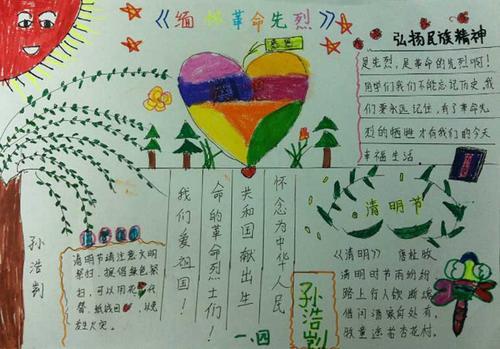 《缅怀革命先烈》
弘扬民族精神
是先烈，是革命的先烈啊！
同学们我们不能忘记历史，我
们要永远记住，有了革命先
烈的牺牲才有我们的今天
幸福生活。
怀念为中华人民
共和国献出生
命的革命烈士们！
我们爱祖国！
孙浩
清明节请注意文明
祭扫，提倡绿色祭
扫，可以用花
替，纸钱
发生火灾。
一.四
孙浩
清明节
《清明》 唐杜牧
清明时节雨纷纷
路上行人欲断魂
借问酒家何处有
牧童遥指杏花村。